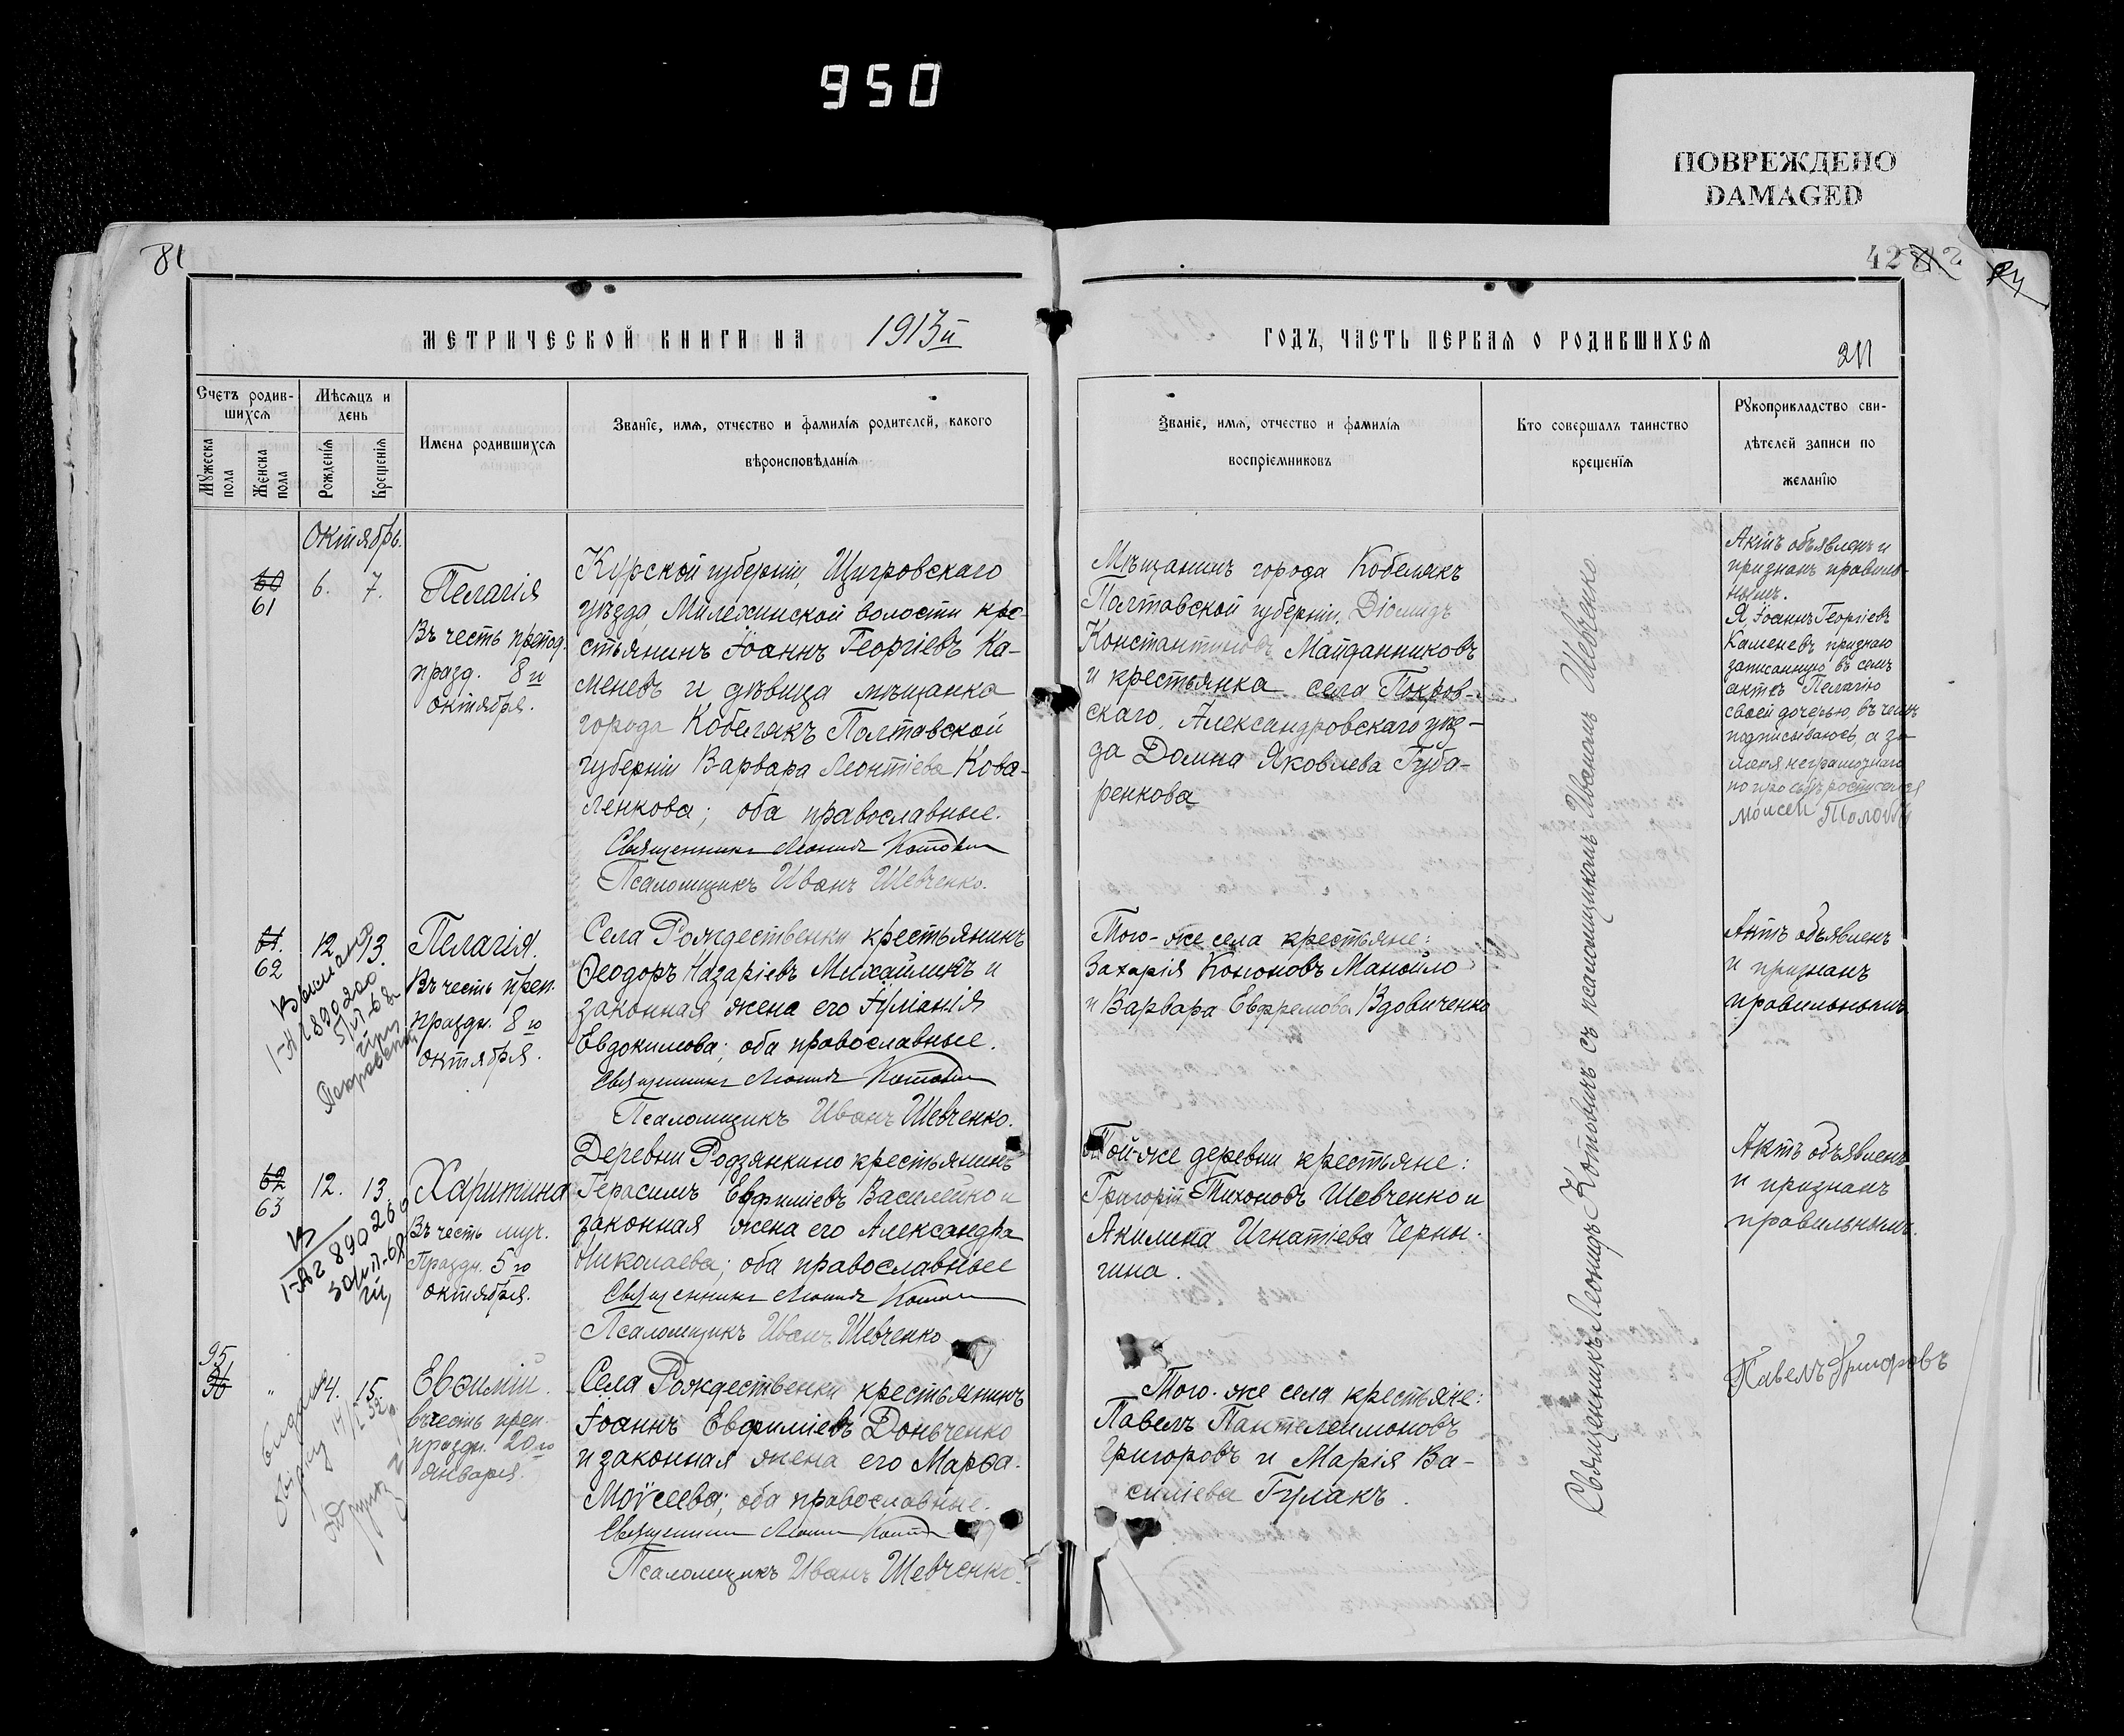 950
ПОВРЕЖДЕНО
DAMAGED
81
42
МЕТРИЧЕСКОЙ КНИГИ НА 1913й
ГОДЪ, ЧАСТЬ ПЕРВАЯ О РОДИВШИХСЯ
Счетъ родив-
шихся
Мужеска
пола
Женска
пола
Мѣсяцъ и
день
Рожденія
Крещенія
Имена родившихся
Званіе, имя, отчество и фамилія родителей, какого
вѣроисповѣданія
Званіе, имя, отчество и фамилія
воспріемниковъ
Кто совершалъ таинство
крещенія
Рукоприкладство сви-
дѣтелей записи по
желанію
Октябрь.
60
61
6.
7.
Пелагія
Въ честь препод.
празд. 8го
октября.
Курской губерніи, Щигровскаго
уѣзда, Милехинской волости кре-
стьянинъ Іоаннъ Георгіевъ Ка-
меневъ и дѣвица мѣщанка
города Кобелякъ Полтавской
губерніи Варвара Леонтіева Кова-
ленкова; оба православные.
Священникъ Леонидъ Котовичъ
Псаломщикъ Иванъ Шевченко.
Мѣщанинъ города Кобелякъ
Полтавской губерніи, Діомидъ
Константиновъ Майданниковъ
и крестьянка села Покров-
скаго, Александровскаго уѣз-
да Домна Яковлева Губа-
ренкова
Актъ объявленъ и
признанъ правиль-
нымъ.
Я, Іоаннъ Георгіевъ
Каменевъ признаю
записанную въ семъ
актѣ Пелагію
своей дочерью, въ чемъ
подписываюсь, а за
меня неграмотнаго
Моисей
61.
62
12.
13.
Пелагія.
Въ честь преп.
праздн. 8го
октября.
Села Рождественки крестьянинъ
Ѳеодоръ Назаріевъ Михайликъ и
законная жена его Іуліанія
Евдокимова; оба православные.
Священникъ Леонидъ Котовичъ
Псаломщикъ Иванъ Шевченко.
Того-же села крестьяне:
Захарія Кононовъ Манойло
и Варвара Евфремова Вдовиченко
Актъ объявленъ
и признанъ
правильнымъ
62
63
12.
13.
Харитина
Въ честь муч.
Праздн. 5го
октября.
Деревни Родзянкино крестьянинъ
Герасимъ Евфиміевъ Василейко и
законная жена его Александра
Николаева; оба православные
Священникъ Леонидъ Котовичъ
Псаломщикъ Иванъ Шевченко
Той-же деревни крестьяне:
Григорій Тихоновъ Шевченко и
Акилина Игнатіева Черны-
гина.
Актъ объявленъ
и признанъ
правильнымъ.
95
14.
15.
Евѳимій.
въ честь преп.
праздн. 20го
января.
Села Рождественки крестьянинъ
Іоаннъ Евфиміевъ Доньченко
и законная жена его Марѳа
Моѵсеева; оба православные.
Священникъ Леонидъ Котовичъ
Псаломщикъ Иванъ Шевченко.
Того-же села крестьяне:
Павелъ Пантелеимоновъ
Григоровъ и Марія Ва-
силіева Гулакъ.
Павелъ Григоровъ
Священникъ Леонидъ Котовичъ съ псаломщикомъ Иваномъ Шевченко